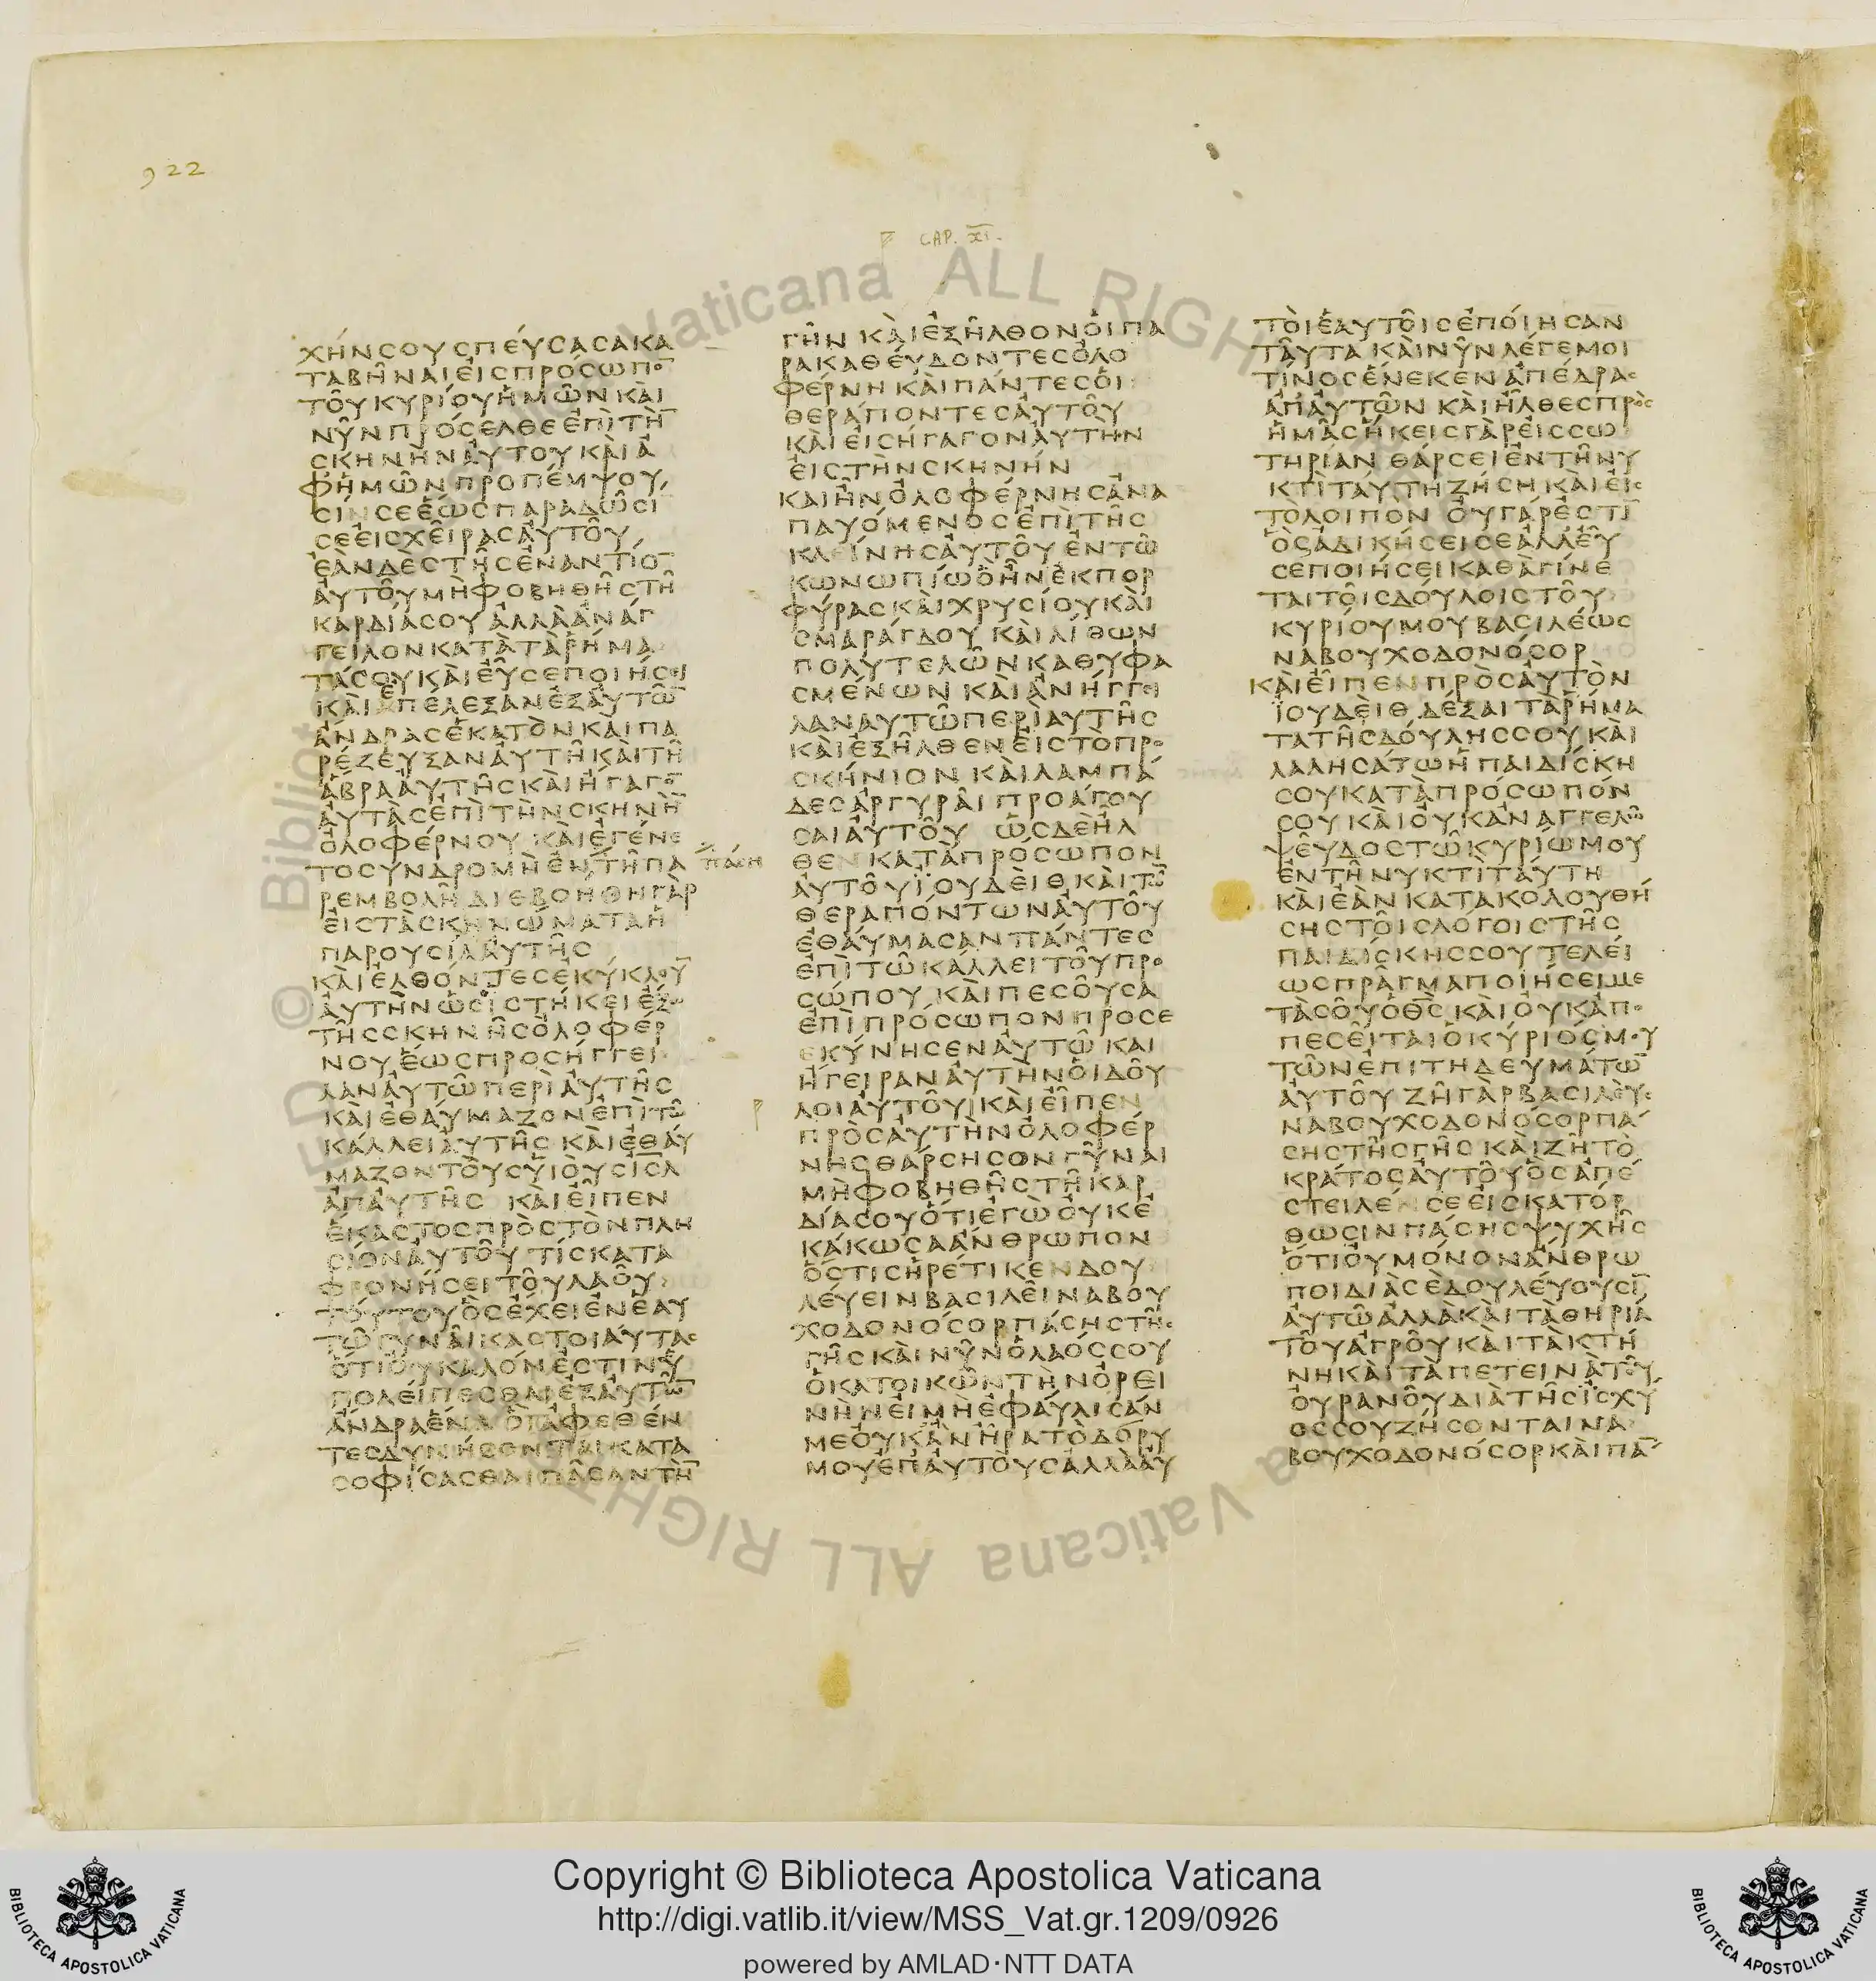 922
CAP. XI.
ΧΗΝϹΟΥϹΠΕΥϹΑϹΑΚΑ
ΤΑΒΗΝΑΙΕΙϹΠΡΟϹΩΠΟ̅
ΤΟΥΚΥΡΙΟΥΗΜΩΝΚΑΙ
ΝΥΝΠΡΟϹΕΛΘΕΕΠΙΤΗ̅
ϹΚΗΝΗΝΑΥΤΟΥΚΑΙΑ
ΦΗΜΩΝΠΡΟΠΕΜΨΟΥ
ϹΙΝϹΕΕΩϹΠΑΡΑΔΩϹΙ
ϹΕΕΙϹΧΕΙΡΑϹΑΥΤΟΥ
ΕΑΝΔΕϹΤΗϹΕΝΑΝΤΙΟ̅
ΑΥΤΟΥΜΗΦΟΒΗΘΗϹΤΗ
ΚΑΡΔΙΑϹΟΥΑΛΛΑΑΝΑΓ
ΓΕΙΛΟΝΚΑΤΑΤΑΡΗΜΑ
ΤΑϹΟΥΚΑΙΕΥϹΕΠΟΙΗϹΕΙ
ΚΑΙΕΠΕΛΕΞΑΝΕΞΑΥΤΩ̅
ΑΝΔΡΑϹΕΚΑΤΟΝΚΑΙΠΑ
ΡΕΖΕΥΞΑΝΑΥΤΗΚΑΙΤΗ
ΑΒΡΑΑΥΤΗϹΚΑΙΗΓΑΓΟ̅
ΑΥΤΑϹΕΠΙΤΗΝϹΚΗΝΗ̅
ΟΛΟΦΕΡΝΟΥ ΚΑΙΕΓΕΝΕ
ΤΟϹΥΝΔΡΟΜΗΕΝΤΗΠΑ
ΠΑϹΗ
ΡΕΜΒΟΛΗΔΙΕΒΟΗΘΗΓΑΡ
ΕΙϹΤΑϹΚΗΝΩΜΑΤΑΗ
ΠΑΡΟΥϹΙΑΑΥΤΗϹ
ΚΑΙΕΛΘΟΝΤΕϹΕΚΥΚΛΟΥ̅
ΑΥΤΗΝΩϹΙϹΤΗΚΕΙΕΞΩ
ΤΗϹϹΚΗΝΗϹΟΛΟΦΕΡ
ΝΟΥΕΩϹΠΡΟϹΗΓΓΕΙ
ΛΑΝΑΥΤΩΠΕΡΙΑΥΤΗϹ
ΚΑΙΕΘΑΥΜΑΖΟΝΕΠΙΤΩ
ΚΑΛΛΕΙΑΥΤΗϹ ΚΑΙΕΘΑΥ
ΜΑΖΟΝΤΟΥϹΥΙΟΥϹΙϹΛ
ΑΠΑΥΤΗϹ ΚΑΙΕΙΠΕΝ
ΕΚΑϹΤΟϹΠΡΟϹΤΟΝΠΛΗ
ϹΙΟΝΑΥΤΟΥ ΤΙϹΚΑΤΑ
ΦΡΟΝΗϹΕΙΤΟΥΛΑΟΥ
ΤΟΥΤΟΥΟϹΕΧΕΙΕΝΕΑΥ
ΤΩΓΥΝΑΙΚΑϹΤΟΙΑΥΤΑϹ
ΟΤΙΟΥΚΑΛΟΝΕϹΤΙΝΥ
ΠΟΛΕΙΠΕϹΘΑΙΕΞΑΥΤΩ̅
ΑΝΔΡΑΕΝΑ ΟΙΑΦΕΘΕΝ
ΤΕϹΔΥΝΗϹΟΝΤΑΙΚΑΤΑ
ϹΟΦΙϹΑϹΘΑΙΠΑϹΑΝΤΗ̅
ΓΗΝ ΚΑΙΕΞΗΛΘΟΝΟΙΠΑ
ΡΑΚΑΘΕΥΔΟΝΤΕϹΟΛΟ
ΦΕΡΝΗΚΑΙΠΑΝΤΕϹΟΙ
ΘΕΡΑΠΟΝΤΕϹΑΥΤΟΥ
ΚΑΙΕΙϹΗΓΑΓΟΝΑΥΤΗΝ
ΕΙϹΤΗΝϹΚΗΝΗΝ
ΚΑΙΗΝΟΛΟΦΕΡΝΗϹΑΝΑ
ΠΑΥΟΜΕΝΟϹΕΠΙΤΗϹ
ΚΛΕΙΝΗϹΑΥΤΟΥΕΝΤΩ
ΚΩΝΩΠΙΩΟΗΝΕΚΠΟΡ
ΦΥΡΑϹΚΑΙΧΡΥϹΙΟΥΚΑΙ
ϹΜΑΡΑΓΔΟΥ ΚΑΙΛΙΘΩΝ
ΠΟΛΥΤΕΛΩΝΚΑΘΥΦΑ
ϹΜΕΝΩΝ ΚΑΙΑΝΗΓΓΕΙ
ΛΑΝΑΥΤΩΠΕΡΙΑΥΤΗϹ
ΚΑΙΕΞΗΛΘΕΝΕΙϹΤΟΠΡΟ
ϹΚΗΝΙΟΝ ΚΑΙΛΑΜΠΑ
ΔΕϹΑΡΓΥΡΑΙΠΡΟΑΓΟΥ
ϹΑΙΑΥΤΟΥ ΩϹΔΕΗΛ
ΘΕΝΚΑΤΑΠΡΟϹΩΠΟΝ
ΑΥΤΟΥΪΟΥΔΕΙΘΚΑΙΤΩ̅
ΘΕΡΑΠΟΝΤΩΝΑΥΤΟΥ
ΕΘΑΥΜΑϹΑΝΠΑΝΤΕϹ
ΕΠΙΤΩΚΑΛΛΕΙΤΟΥΠΡΟ
ϹΩΠΟΥ ΚΑΙΠΕϹΟΥϹΑ
ΕΠΙΠΡΟϹΩΠΟΝΠΡΟϹΕ
ΚΥΝΗϹΕΝΑΥΤΩ ΚΑΙ
ΗΓΕΙΡΑΝΑΥΤΗΝΟΙΔΟΥ
ΛΟΙΑΥΤΟΥ ΚΑΙΕΙΠΕΝ
ΠΡΟϹΑΥΤΗΝΟΛΟΦΕΡ
ΝΗϹΘΑΡϹΗϹΟΝΓΥΝΑΙ
ΜΗΦΟΒΗΘΗϹΤΗΚΑΡ
ΔΙΑϹΟΥΟΤΙΕΓΩΟΥΚΕ
ΚΑΚΩϹΑΑΝΘΡΩΠΟΝ
ΟϹΤΙϹΗΡΕΤΙΚΕΝΔΟΥ
ΛΕΥΕΙΝΒΑϹΙΛΕΙΝΑΒΟΥ
ΧΟΔΟΝΟϹΟΡΠΑϹΗϹΤΗϹ
ΓΗϹΚΑΙΝΥΝΟΛΑΟϹϹΟΥ
ΟΚΑΤΟΙΚΩΝΤΗΝΟΡΕΙ
ΝΗΝΕΙΜΗΕΦΑΥΛΙϹΑΝ
ΜΕΟΥΚΑΝΗΡΑΤΟΔΟΡΥ
ΜΟΥΕΠΑΥΤΟΥϹΑΛΛΑΑΥ
ΤΟΙΕΑΥΤΟΙϹΕΠΟΙΗϹΑΝ
ΤΑΥΤΑ ΚΑΙΝΥΝΛΕΓΕΜΟΙ
ΤΙΝΟϹΕΝΕΚΕΝΑΠΕΔΡΑϹ
ΑΠΑΥΤΩΝ ΚΑΙΗΛΘΕϹΠΡΟϹ
ΗΜΑϹΗΚΕΙϹΓΑΡΕΙϹϹΩ
ΤΗΡΙΑΝ ΘΑΡϹΕΙΕΝΤΗΝΥ
ΚΤΙΤΑΥΤΗΖΗϹΗΚΑΙΕΙϹ
ΤΟΛΟΙΠΟΝ ΟΥΓΑΡΕϹΤΙ̅
ΟϹΑΔΙΚΗϹΕΙϹΕΑΛΛΕΥ
ϹΕΠΟΙΗϹΕΙΚΑΘΑΓΙΝΕ
ΤΑΙΤΟΙϹΔΟΥΛΟΙϹΤΟΥ
ΚΥΡΙΟΥΜΟΥΒΑϹΙΛΕΩϹ
ΝΑΒΟΥΧΟΔΟΝΟϹΟΡ
ΚΑΙΕΙΠΕΝΠΡΟϹΑΥΤΟΝ
ΪΟΥΔΕΙΘΔΕΞΑΙΤΑΡΗΜΑ
ΤΑΤΗϹΔΟΥΛΗϹϹΟΥΚΑΙ
ΛΑΛΗϹΑΤΩΗΠΑΙΔΙϹΚΗ
ϹΟΥΚΑΤΑΠΡΟϹΩΠΟΝ
ϹΟΥΚΑΙΟΥΚΑΝΑΓΓΕΛΩ
ΨΕΥΔΟϹΤΩΚΥΡΙΩΜΟΥ
ΕΝΤΗΝΥΚΤΙΤΑΥΤΗ
ΚΑΙΕΑΝΚΑΤΑΚΟΛΟΥΘΗ
ϹΗϹΤΟΙϹΛΟΓΟΙϹΤΗϹ
ΠΑΙΔΙϹΚΗϹϹΟΥΤΕΛΕΙ
ΩϹΠΡΑΓΜΑΠΟΙΗϹΕΙΜΕ
ΤΑϹΟΥΟΘϹΚΑΙΟΥΚΑΠΟ
ΠΕϹΕΙΤΑΙΟΚΥΡΙΟϹΜΟΥ
ΤΩΝΕΠΙΤΗΔΕΥΜΑΤΩ̅
ΑΥΤΟΥ ΖΗΓΑΡΒΑϹΙΛΕΥϹ
ΝΑΒΟΥΧΟΔΟΝΟϹΟΡΠΑ
ϹΗϹΤΗϹΓΗϹ ΚΑΙΖΗΤΟ
ΚΡΑΤΟϹΑΥΤΟΥΟϹΑΠΕ
ϹΤΕΙΛΕΝϹΕΕΙϹΚΑΤΟΡ
ΘΩϹΙΝΠΑϹΗϹΨΥΧΗϹ
ΟΤΙΟΥΜΟΝΟΝΑΝΘΡΩ
ΠΟΙΔΙΑϹΕΔΟΥΛΕΥΟΥϹΙ̅
ΑΥΤΩΑΛΛΑΚΑΙΤΑΘΗΡΙΑ
ΤΟΥΑΓΡΟΥΚΑΙΤΑΚΤΗ
ΝΗΚΑΙΤΑΠΕΤΕΙΝΑΤΟΥ
ΟΥΡΑΝΟΥΔΙΑΤΗϹΙϹΧΥ
ΟϹϹΟΥΖΗϹΟΝΤΑΙΝΑ
ΒΟΥΧΟΔΟΝΟϹΟΡΚΑΙΠΑ̅
Copyright © Biblioteca Apostolica Vaticana
http://digi.vatlib.it/view/MSS_Vat.gr.1209/0926
powered by AMLAD·NTT DATA
BIBLIOTECA APOSTOLICA VATICANA
BIBLIOTECA APOSTOLICA VATICANA